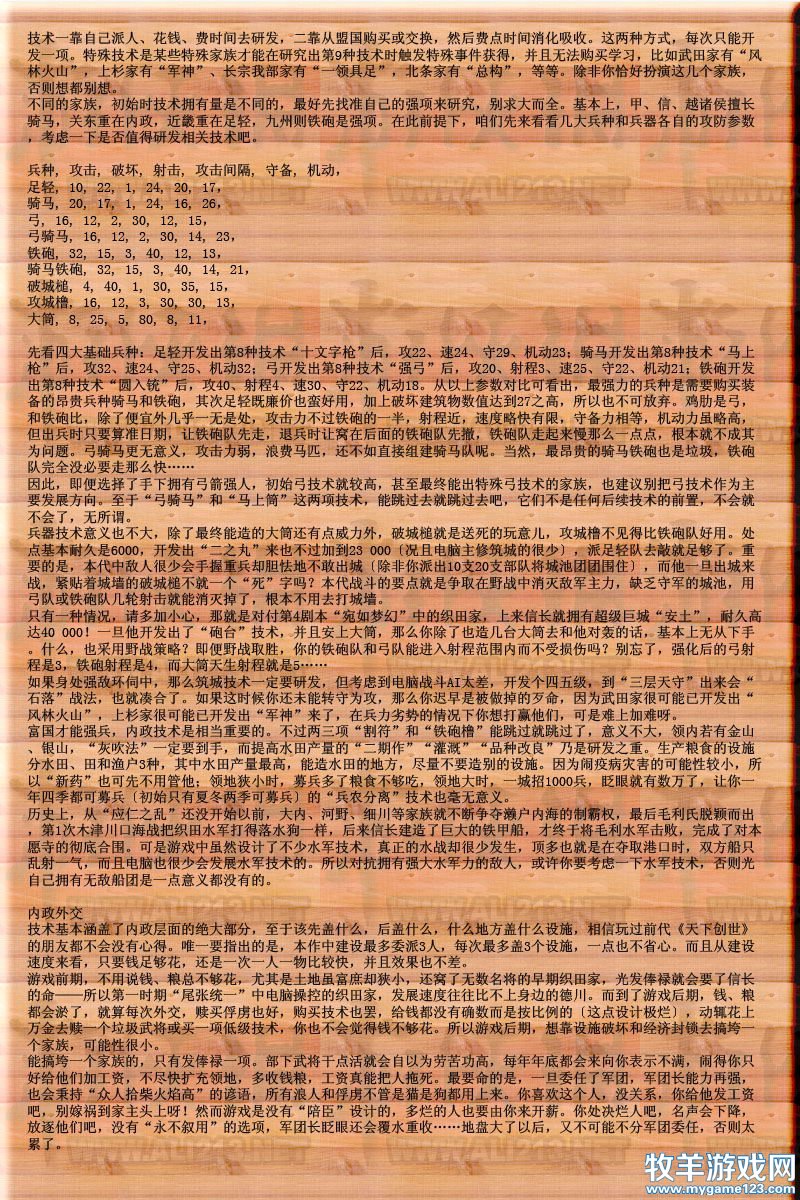 技术一靠自己派人、花钱、费时间去研发，二靠从盟国购买或交换，然后费点时间消化吸收。这两种方式，每次只能开
发一项。特殊技术是某些特殊家族才能在研究出第9种技术时触发特殊事件获得，并且无法购买学习，比如武田家有“风
林火山”，上杉家有“军神”、长宗我部家有“一领具足”，北条家有“总构”，等等。除非你恰好扮演这几个家族，
否则想都别想。
不同的家族，初始时技术拥有量是不同的，最好先找准自己的强项来研究，别求大而全。基本上，甲、信、越诸侯擅长
骑马，关东重在内政，近畿重在足轻，九州则铁砲是强项。在此前提下，咱们先来看看几大兵种和兵器各自的攻防参数
，考虑一下是否值得研发相关技术吧。
兵种, 攻击, 破坏, 射击, 攻击间隔, 守备, 机动,
足轻, 10, 22, 1, 24, 20, 17,
骑马, 20, 17, 1, 24, 16, 26,
弓, 16, 12, 2, 30, 12, 15,
弓骑马, 16, 12, 2, 30, 14, 23,
铁砲, 32, 15, 3, 40, 12, 13,
骑马铁砲, 32, 15, 3, 40, 14, 21,
破城槌, 4, 40, 1, 30, 35, 15,
攻城橹, 16, 12, 3, 30, 30, 13,
大筒, 8, 25, 5, 80, 8, 11,
先看四大基础兵种：足轻开发出第8种技术“十文字枪”后，攻22、速24、守29、机动23；骑马开发出第8种技术“马上
枪”后，攻32、速24、守25、机动32；弓开发出第8种技术“强弓”后，攻20、射程3、速25、守22、机动21；铁砲开发
出第8种技术“圆入铳”后，攻40、射程4、速30、守22、机动18。从以上参数对比可看出，最强力的兵种是需要购买装
备的昂贵兵种骑马和铁砲，其次足轻既廉价也蛮好用，加上破坏建筑物数值达到27之高，所以也不可放弃。鸡肋是弓，
和铁砲比，除了便宜外几乎一无是处，攻击力不过铁砲的一半，射程近，速度略快有限，守备力相等，机动力虽略高，
但出兵时只要算准日期，让铁砲队先走，退兵时让窝在后面的铁砲队先撤，铁砲队走起来慢那么一点点，根本就不成其
为问题。弓骑马更无意义，攻击力弱，浪费马匹，还不如直接组建骑马队呢。当然，最昂贵的骑马铁砲也是垃圾，铁砲
队完全没必要走那么快……
因此，即便选择了手下拥有弓箭强人，初始弓技术就较高，甚至最终能出特殊弓技术的家族，也建议别把弓技术作为主
要发展方向。至于“弓骑马”和“马上筒”这两项技术，能跳过去就跳过去吧，它们不是任何后续技术的前置，不会就
不会了，无所谓。
兵器技术意义也不大，除了最终能造的大筒还有点威力外，破城槌就是送死的玩意儿，攻城橹不见得比铁砲队好用。处
点基本耐久是6000，开发出“二之丸”来也不过加到23 000〔况且电脑主修筑城的很少〕，派足轻队去敲就足够了。重
要的是，本代中敌人很少会手握重兵却胆怯地不敢出城〔除非你派出10支20支部队将城池团团围住〕，而他一旦出城来
战，紧贴着城墙的破城槌不就一个“死”字吗？本代战斗的要点就是争取在野战中消灭敌军主力，缺乏守军的城池，用
弓队或铁砲队几轮射击就能消灭掉了，根本不用去打城墙。
只有一种情况，请多加小心，那就是对付第4剧本“宛如梦幻”中的织田家，上来信长就拥有超级巨城“安土”，耐久高
达40 000！一旦他开发出了“砲台”技术，并且安上大筒，那么你除了也造几台大筒去和他对轰的话，基本上无从下手
。什么，也采用野战策略？即便野战取胜，你的铁砲队和弓队能进入射程范围内而不受损伤吗？别忘了，强化后的弓射
程是3，铁砲射程是4，而大筒天生射程就是5……
如果身处强敌环伺中，那么筑城技术一定要研发，但考虑到电脑战斗AI太差，开发个四五级，到“三层天守”出来会“
石落”战法，也就凑合了。如果这时候你还未能转守为攻，那么你迟早是被做掉的歹命，因为武田家很可能已开发出“
风林火山”，上杉家很可能已开发出“军神”来了，在兵力劣势的情况下你想打赢他们，可是难上加难呀。
富国才能强兵，内政技术是相当重要的。不过两三项“割符”和“铁砲橹”能跳过就跳过了，意义不大，领内若有金山
、银山，“灰吹法”一定要到手，而提高水田产量的“二期作”“灌溉”“品种改良”乃是研发之重。生产粮食的设施
分水田、田和渔户3种，其中水田产量最高，能造水田的地方，尽量不要造别的设施。因为闹疫病灾害的可能性较小，所
以“新药”也可先不用管他；领地狭小时，募兵多了粮食不够吃，领地大时，一城招1000兵，眨眼就有数万了，让你一
年四季都可募兵〔初始只有夏冬两季可募兵〕的“兵农分离”技术也毫无意义。
历史上，从“应仁之乱”还没开始以前，大内、河野、细川等家族就不断争夺濑户内海的制霸权，最后毛利氏脱颖而出
，第1次木津川口海战把织田水军打得落水狗一样，后来信长建造了巨大的铁甲船，才终于将毛利水军击败，完成了对本
愿寺的彻底合围。可是游戏中虽然设计了不少水军技术，真正的水战却很少发生，顶多也就是在夺取港口时，双方船只
乱射一气，而且电脑也很少会发展水军技术的。所以对抗拥有强大水军力的敌人，或许你要考虑一下水军技术，否则光
自己拥有无敌船团是一点意义都没有的。
内政外交
技术基本涵盖了内政层面的绝大部分，至于该先盖什么，后盖什么，什么地方盖什么设施，相信玩过前代《天下创世》
的朋友都不会没有心得。唯一要指出的是，本作中建设最多委派3人，每次最多盖3个设施，一点也不省心。而且从建设
速度来看，只要钱足够花，还是一次一人一物比较快，并且效果也不差。
游戏前期，不用说钱、粮总不够花，尤其是土地虽富庶却狭小，还窝了无数名将的早期织田家，光发俸禄就会要了信长
的命——所以第一时期“尾张统一”中电脑操控的织田家，发展速度往往比不上身边的德川。而到了游戏后期，钱、粮
都会淤了，就算每次外交，赎买俘虏也好，购买技术也罢，给钱都没有确数而是按比例的〔这点设计极烂〕，动辄花上
万金去赎一个垃圾武将或买一项低级技术，你也不会觉得钱不够花。所以游戏后期，想靠设施破坏和经济封锁去搞垮一
个家族，可能性很小。
能搞垮一个家族的，只有发俸禄一项。部下武将干点活就会自以为劳苦功高，每年年底都会来向你表示不满，闹得你只
好给他们加工资，不尽快扩充领地，多收钱粮，工资真能把人拖死。最要命的是，一旦委任了军团，军团长能力再强，
也会秉持“众人拾柴火焰高”的谚语，所有浪人和俘虏不管是猫是狗都用上来。你喜欢这个人，没关系，你给他发工资
吧，别嫁祸到家主头上呀！然而游戏是没有“陪臣”设计的，多烂的人也要由你来开薪。你处决烂人吧，名声会下降，
放逐他们吧，没有“永不叙用”的选项，军团长眨眼还会覆水重收……地盘大了以后，又不可能不分军团委任，否则太
累了。
牧羊游戏网
www.mygame123.com